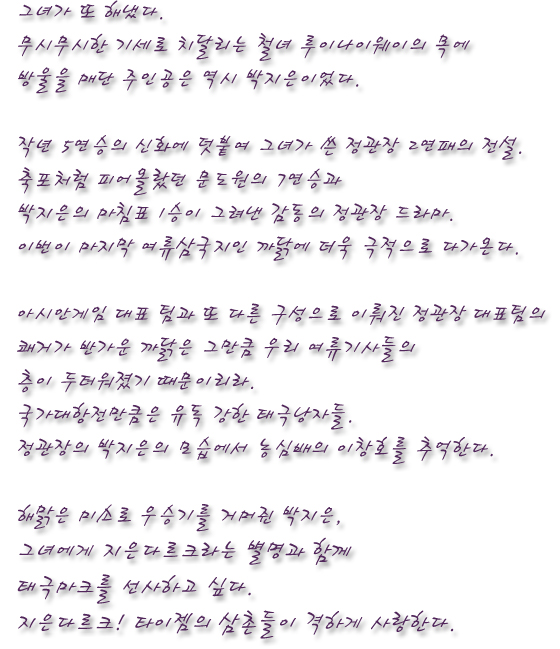 그녀가 또 해냈다.
무시무시한 기세로 치달리는 철녀 루이나이웨이의 목에
방울을 매단 주인공은 역시 박지은이었다.
작년 5연승의 신화에 덧붙여 그녀가 쓴 정관장 2연패의 전설.
축포처럼 피어올랐던 문도원의 7연승과
박지은의 마침표 1승이 그려낸 감동의 정관장 드라마.
이번이 마지막 여류삼국지인 까닭에 더욱 극적으로 다가온다.
아시안게임 대표 팀과 또 다른 구성으로 이뤄진 정관장 대표팀의
쾌거가 반가운 까닭은 그만큼 우리 여류기사들의
층이 두터워졌기 때문이리라.
국가대항전만큼은 유독 강한 태극낭자들.
정관장의 박지은의 모습에서 농심배의 이창호를 추억한다.
해맑은 미소로 우승기를 거머쥔 박지은,
그녀에게 지은다르크라는 별명과 함께
태극마크를 선사하고 싶다.
지은다르크! 타이젬의 삼촌들이 격하게 사랑한다.